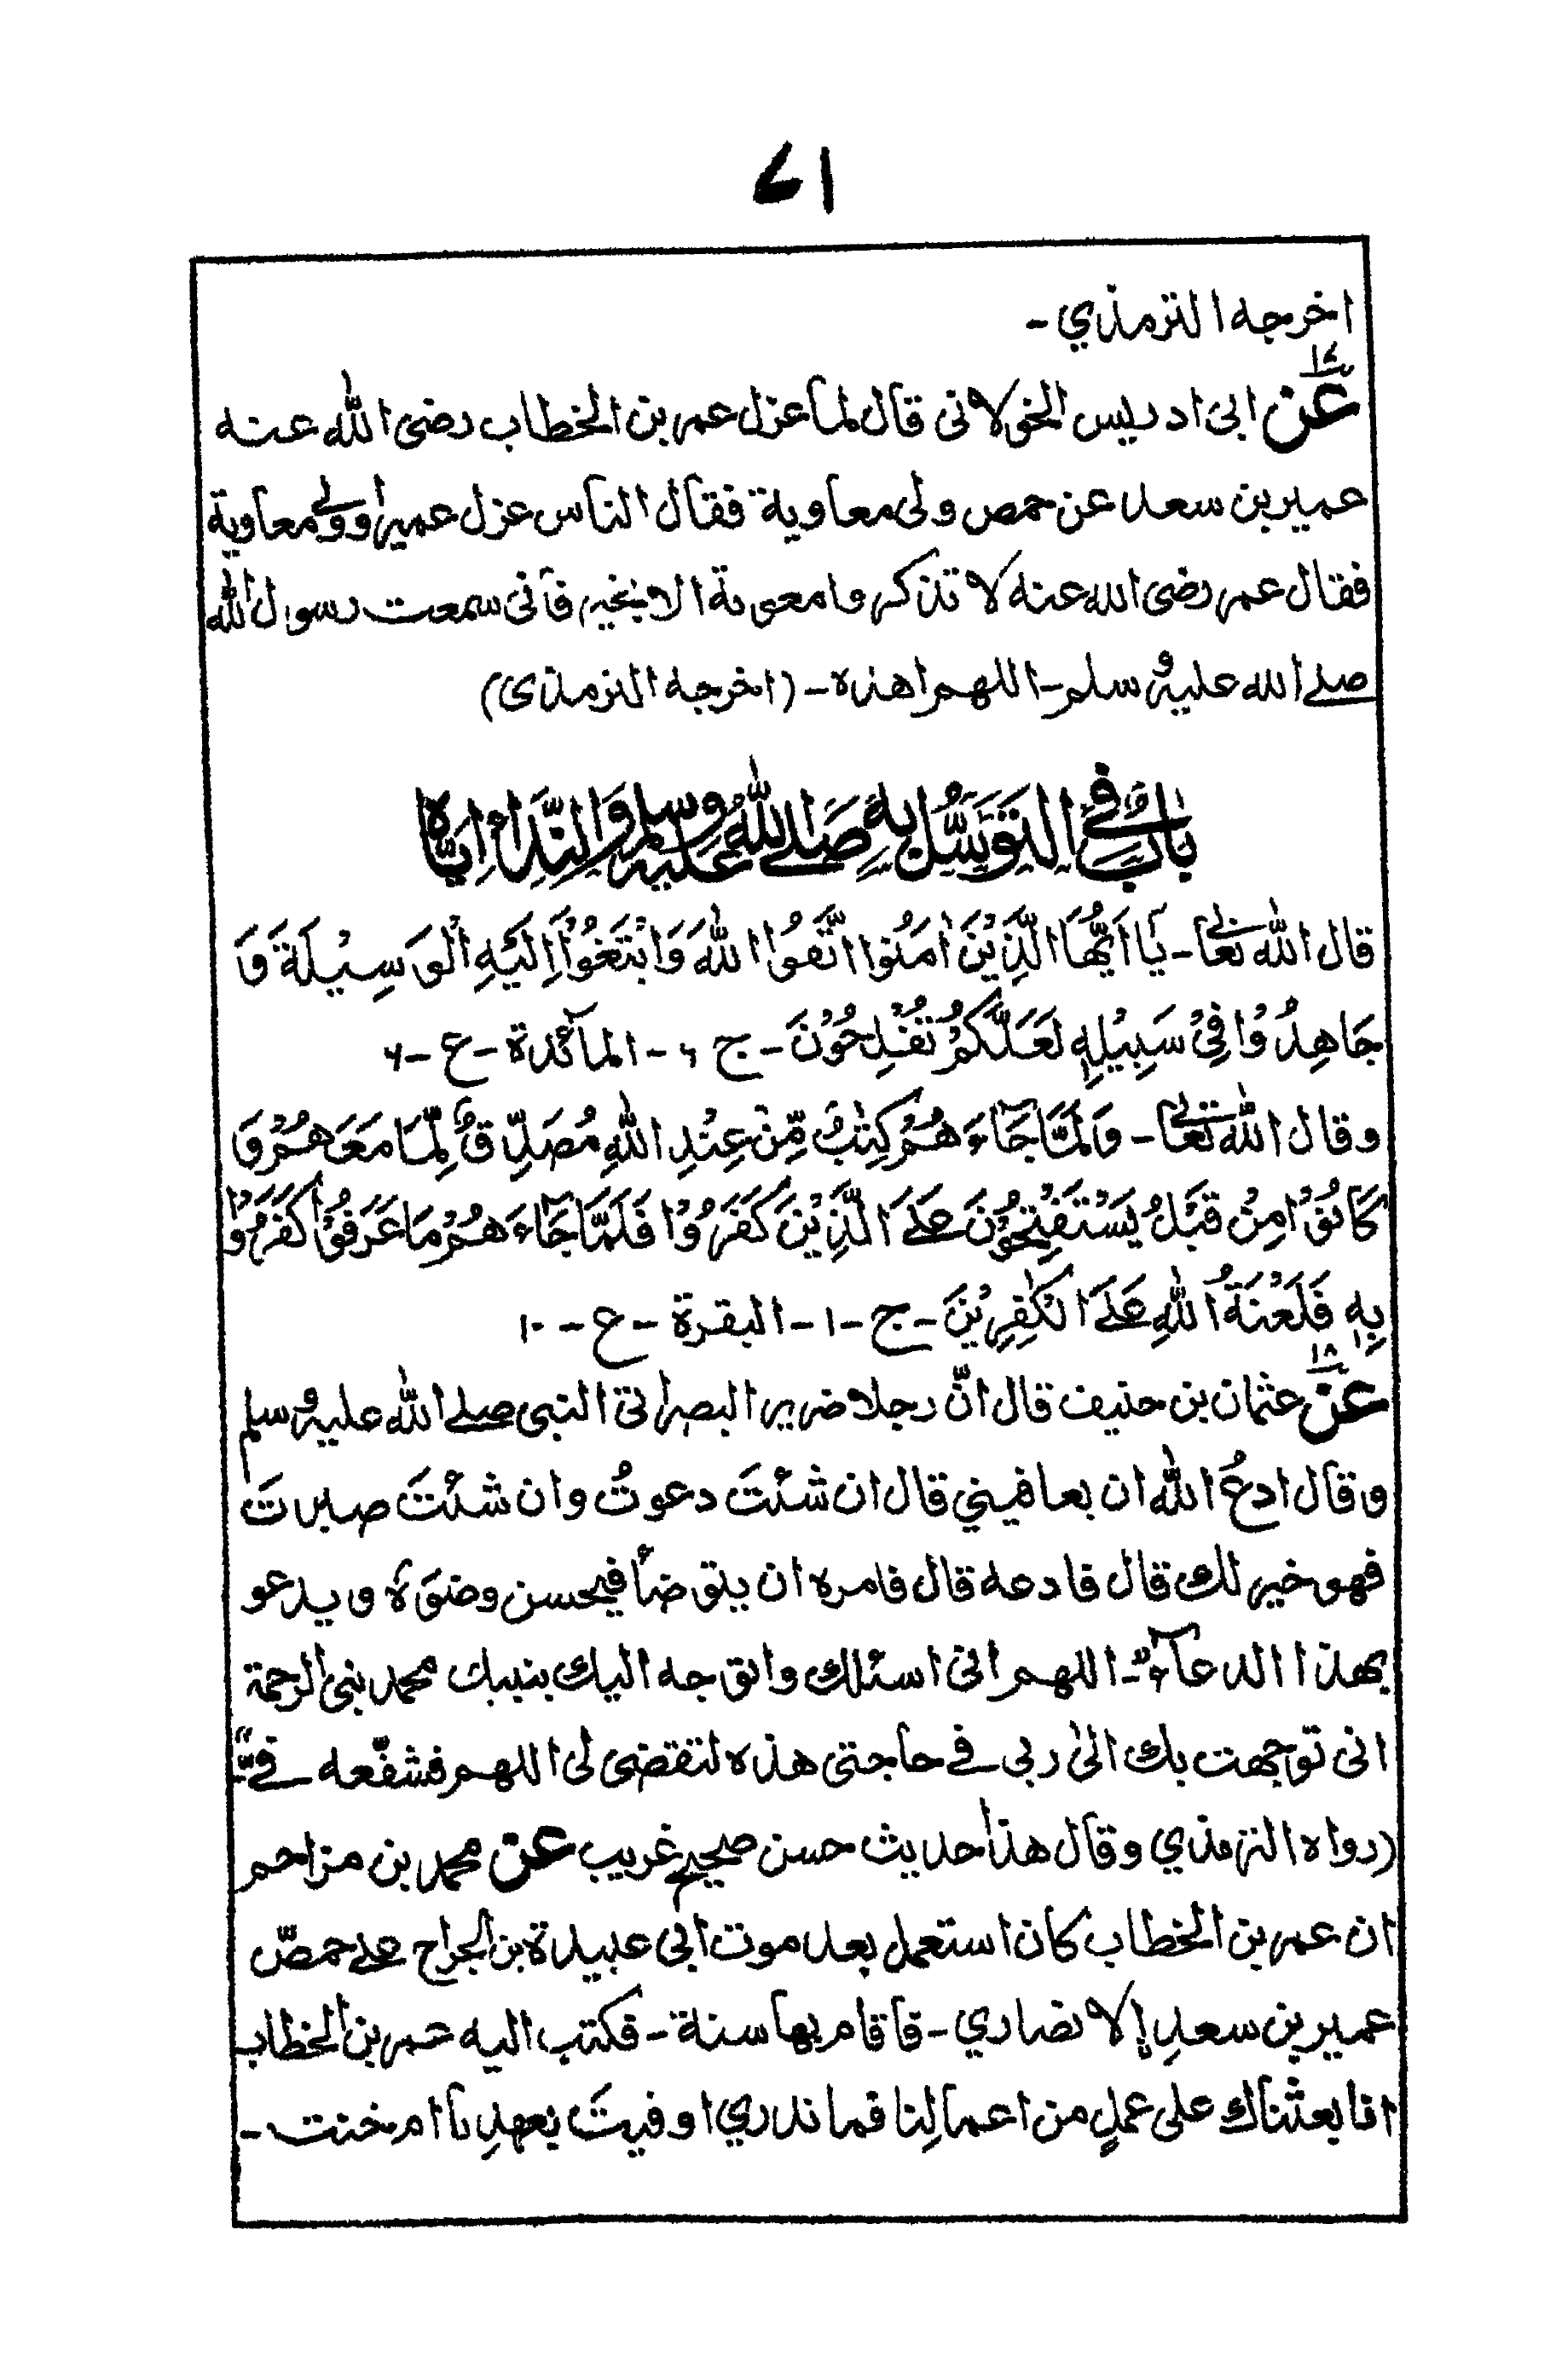 ۷۱
اخرجه الترمذي -
۱۷
عن ابى ادريس الخولانى قال لما عزل عمر بن الخطاب رضى الله عنه
عمير بن سعد عن حمص ولى معاوية فقال الناس عزل عميرا وولى معاوية
فقال عمر رضى الله عنه لا تذكروا معوية الا بخير فانى سمعت رسول الله
صلے الله عليه وسلم - اللهم اهده - (اخرجه الترمذى)
بابٌ فِي التَوَسُّل بهِ صَلے اللهُ عليه وسلم وَالنِّدَاءِ اِيَّاهُ
قال الله تعالى - يَا اَيُّهَا الَّذِيْنَ اٰمَنُوا اتَّقُوا اللهَ وَابْتَغُوْا اِلَيْهِ الْوَسِيْلَةَ وَ
جَاهِدُوْا فِيْ سَبِيْلِهٖ لَعَلَّكُمْ تُفْلِحُوْنَ - ج ۶ - المآئدة - ع - ۶
وقال الله تعالى - وَلَمَّا جَآءَهُمْ كِتٰبٌ مِّنْ عِنْدِ اللهِ مُصَدِّقٌ لِّمَا مَعَهُمْ وَ
كَانُوْا مِنْ قَبْلُ يَسْتَفْتِحُوْنَ عَلَے الَّذِيْنَ كَفَرُوْا فَلَمَّا جَآءَهُمْ مَا عَرَفُوْا كَفَرُوْا
بِهٖ فَلَعْنَةُ اللهِ عَلَے الْكٰفِرِيْنَ - ج - ۱ - البقرة - ع - ۱۰
۱۸
عن عثمان بن حنيف قال انّ رجلا ضرير البصر اتى النبى صلے الله عليه وسلم
وقال ادعُ الله ان يعافيني قال ان شئتَ دعوتُ وان شئتَ صبرتَ
فهو خير لك قال فادعه قال فامره ان يتوضأ فيحسن وضوءه ويدعو
بهذا الدعآء - اللهم انى اسئلك واتوجه اليك بنبيك محمد نبى الرحمة
انى توجهت بك الىٰ ربى فے حاجتى هذه لتقضى لى اللهم فشفّعه فےّ
(رواه الترمذي وقال هذا حديث حسن صحيح غريب عن محمد بن مزاحم
ان عمر بن الخطاب كان استعمل بعد موت ابى عبيدة بن الجراح علے حمصّ
عمير بن سعدٍ الانصاري - فاقام بها سنة - فكتب اليه عمر بن الخطاب
انا بعثناك على عملٍ من اعمالِنا فما ندري اوفيتَ بعهدِنا ام خنت -